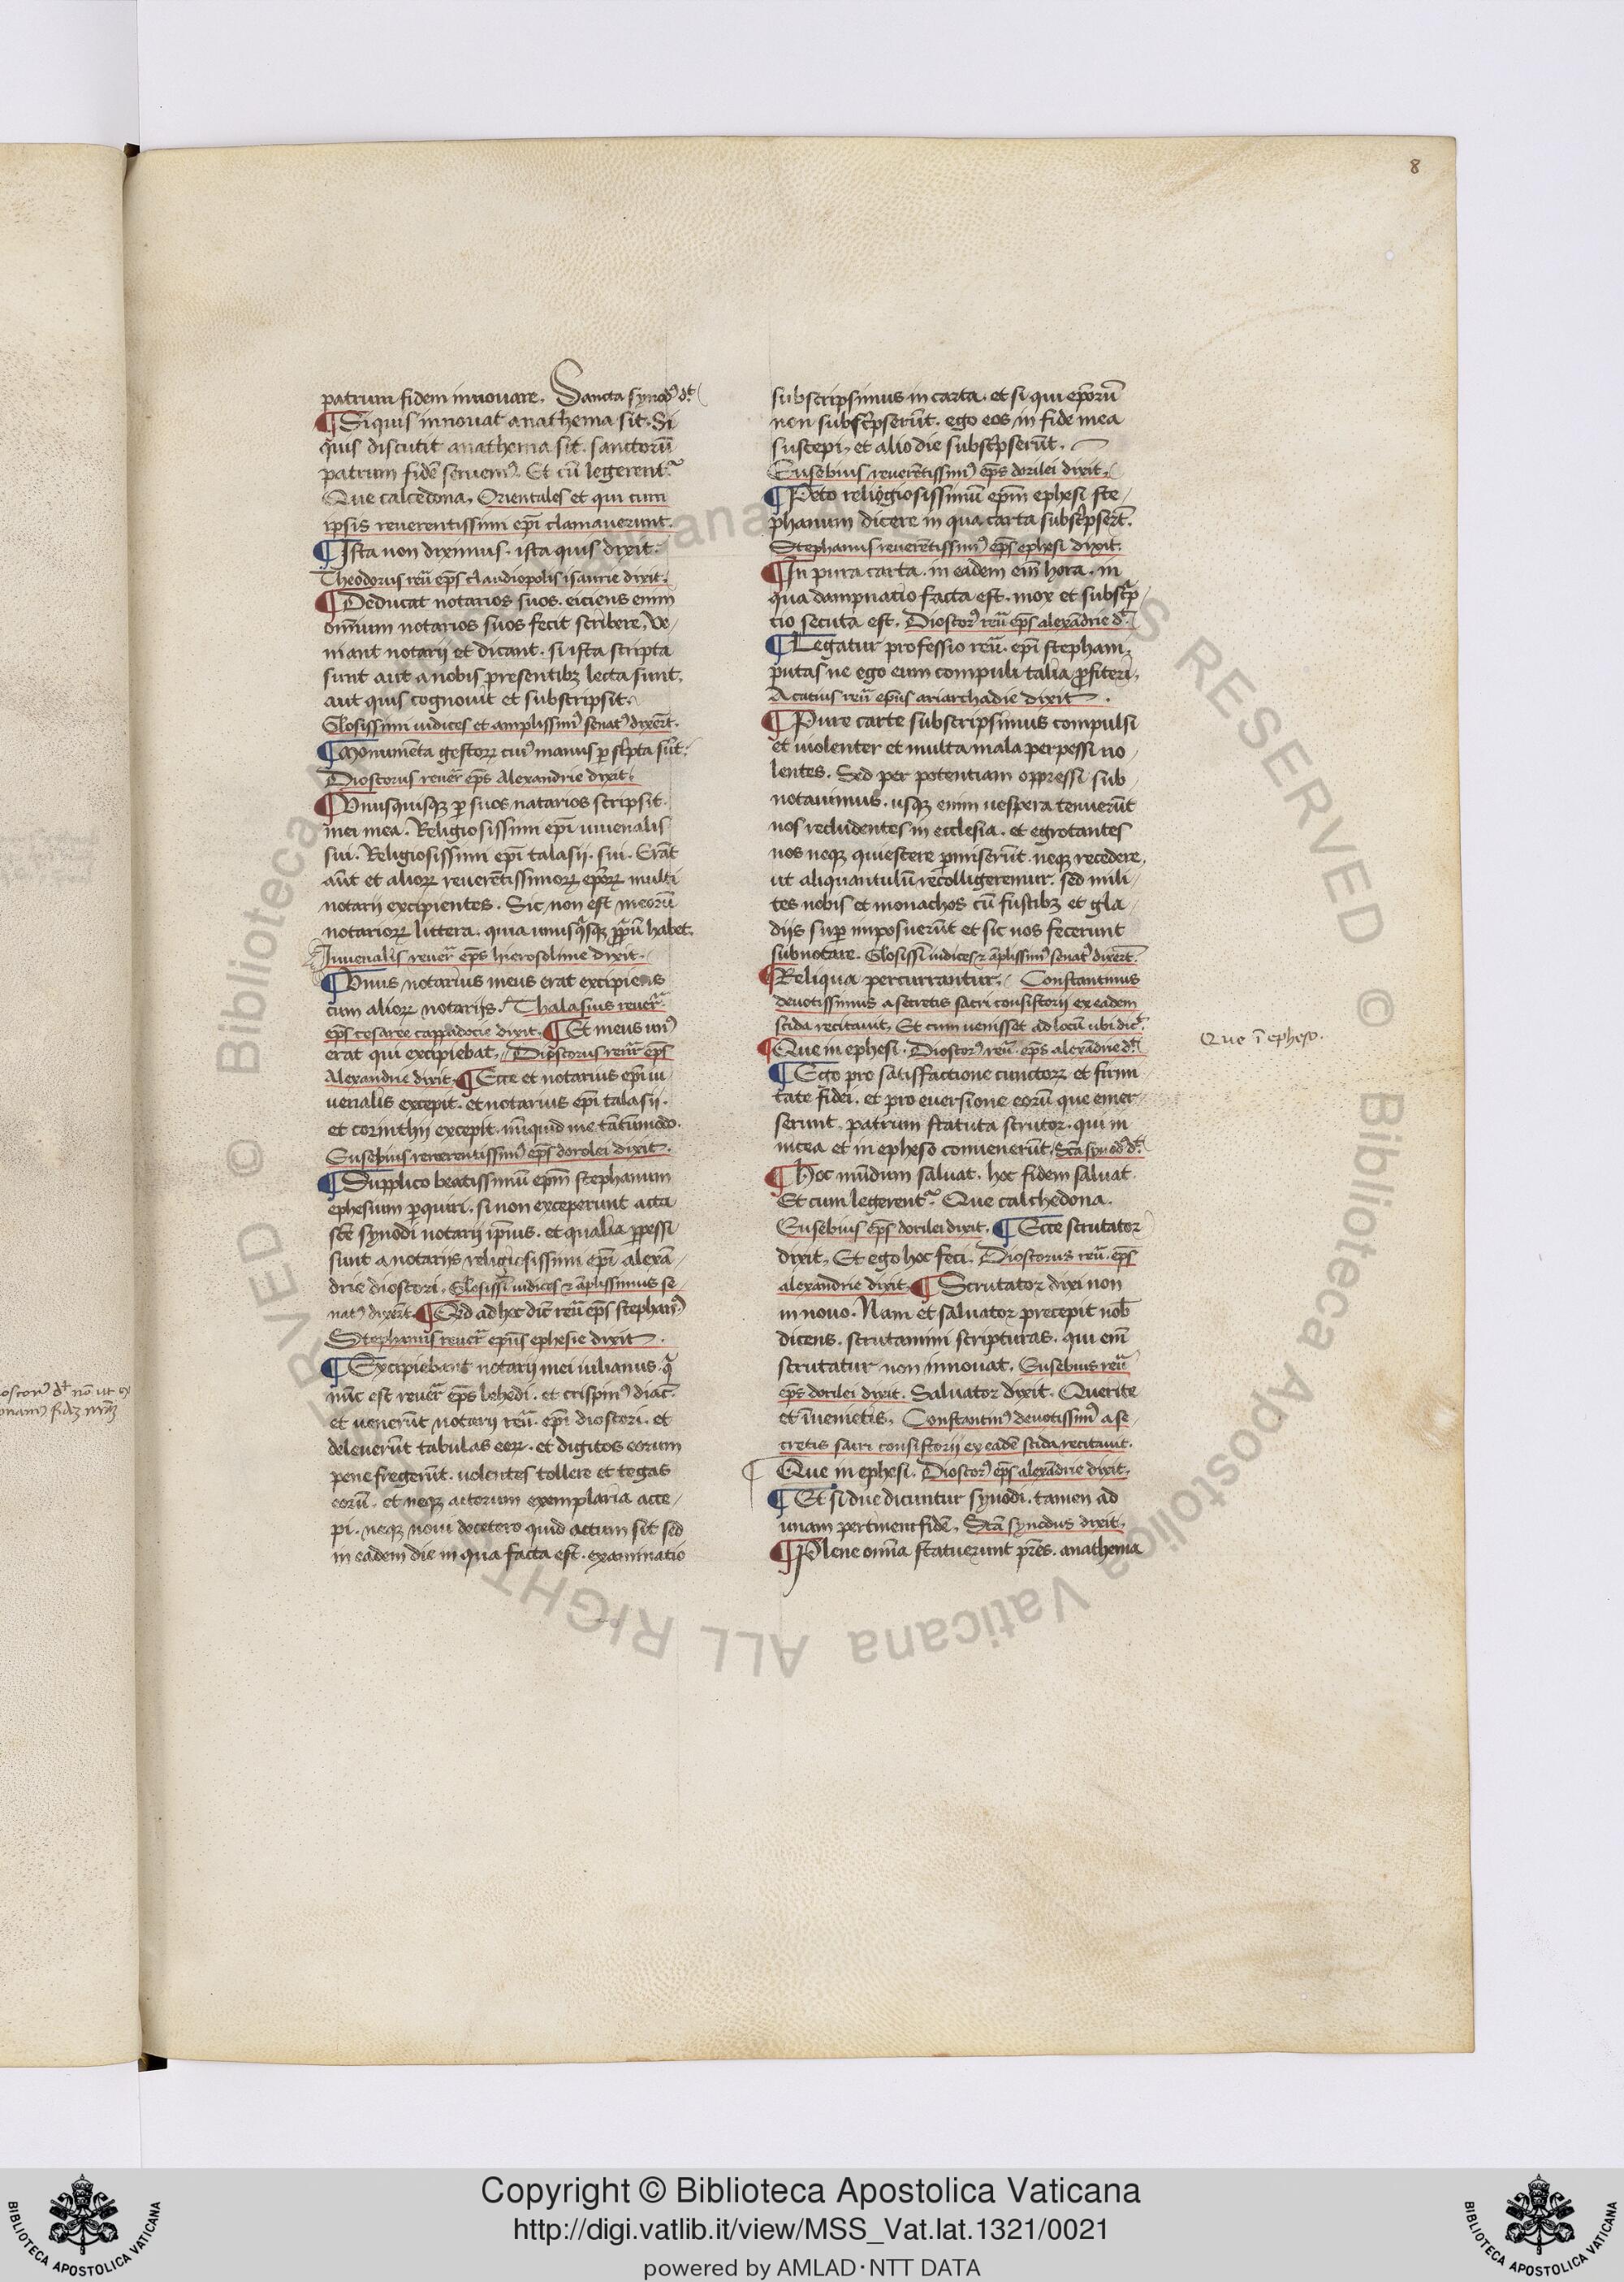 8
patrum fidem innouare. Sancta synodꝰ dt̃
¶ Siquis innouat anathema sit. Si
quis discutit anathema sit. sanctorũ
patrum fidẽ seruemꝰ. Et cũ legerent᷑
Que calcedona, Orientales et qui cum
ipsis reuerentissimi ep̃i clamauerunt.
¶ Ista non diximus. ista quis dixit.
Theodorus reũ ep̃s claudiopolis isaurie dixit.
¶ Deducat notarios suos. eiciens enim
om̃ium notarios suos fecit scribere, Ve
niant notarij et dicant. si ista scripta
sunt aut a nobis presentibꝫ lecta sunt,
aut quis cognouit et subscripsit.
Glosissimi iudices et amplissimꝰ senatꝰ dixer̃t.
¶ Monumẽta gestoꝝ cuiꝰ manus ꝑ scͥpta sũt.
Dioscorus reuer̃ ep̃s Alexandrie dixit.
¶ Vnusquisqꝫ ꝑ suos natarios scripsit.
mei mea. Religiosissimi ep̃i iuuenalis
sui. Religiosissimi ep̃i talasij. sui. Erãt
aũt et alioꝝ reuerẽtissimoꝝ ep̃oꝝ multi
notarij excipientes. Sic non est meorũ
notarioꝝ littera. quia unusqͥsqꝫ ꝓpͥũ habet.
Iuuenalis reuer̃ ep̃s hierosolime dixit.
¶ Vnus notarius meus erat excipiens
cum alioꝝ notarijs. Thalasius reuer̃.
ep̃s cesaree cappadocie dixit. ¶ Et meus unꝰ
erat qui excipiebat. Dioscorus reuer̃ ep̃s
Alexandrie dixit. ¶ Ecce et notarius ep̃i iu
uenalis excepit. et notarius ep̃i talasij.
et corinthij excepit. nũquid me tãtũmodo.
Eusebius reuerentissimꝰ ep̃s dorolei dixit.
¶ Supplico beatissimũ ep̃m stephanum
ephesium ꝑquiri. si non exceperunt acta
scẽ synodi notarij ip̃ius. et qualia ꝑpessi
sunt a notarijs religiosissimi ep̃i alexã
drie dioscori. Glosissĩ iudices ⁊ ãplissimus se
natꝰ dixer̃t. ¶ Qđ ad hec dic̃ reũ ep̃s stephanꝰ
Stephanus reuer̃ ep̃us ephesie dixit.
¶ Excipiebant notarij mei iulianus. qͥ
nũc est reuer̃ ep̃s lebedi. et crispinꝰ diac̃.
et uenerũt notarij reũ. ep̃i dioscori. et
deleuerũt tabulas eoꝝ. et digitos eorum
pene fregerũt. uolentes tollere et tegas
eorũ. et neqꝫ actorum exemplaria acce
pi. neqꝫ noui decetero quid actum sit sed
in eadem die in qua facta est. examinatio
subscripsimus in carta. et si qui ep̃orũ
non subscͥpserũt. ego eos in fide mea
suscepi. et alio die subscͥpserũt.
Eusebius reuerẽtissimꝰ ep̃s dorilei dixit.
¶ Peto religiosissimũ ep̃m ephesi ste
phanum dicere in qua carta subscͥpser̃t.
Stephanus reuerẽtissimꝰ ep̃s ephesi dixit.
¶ In pura carta. in eadem em̃ hora. in
qua dampnatio facta est. mox et subscͥp
cio secuta est. Dioscorꝰ reũ ep̃s alexãdrie dt̃.
¶ Legatur professio reũ. ep̃i stephani.
putas ne ego eum compuli talia ꝓfiteri.
Acatius reũ ep̃us ariarchadie dixit.
¶ Pure carte subscripsimus compulsi
et uiolenter et multa mala perpessi no
lentes. Sed per potentiam oppressi sub
notauimus. usqꝫ enim uespera tenuerũt
nos recludentes in ecclesia. et egrotantes
nos neqꝫ quiescere ꝑmiserũt. neqꝫ recedere,
ut aliquantulũ recolligeremur. sed mili
tes nobis et monachos cũ fustibꝫ et gla
dijs suꝑ imposuerũt et sic nos fecerunt
subnotare. Glosissĩ iudices ⁊ ãplissimꝰ senatꝰ dixer̃t.
¶ Reliqua percurrantur. Constantinus
deuotissimus a secretis sacri consistorij ex eadem
scida recitauit. Et cum uenisset ad locũ ubi dic᷑.
¶ Que in ephesi. Dioscorꝰ reũ. ep̃s alexãdrie dt̃
¶ Ego pro satisfactione cunctoꝝ et firmi
tate fidei. et pro euersione eorũ que emer
serunt. patrum statuta scrutor. qui in
nicea et in epheso conuenerũt. Scã synodꝰ dt̃.
¶ Hoc mũdum saluat. hoc fidem saluat.
Et cum legerent᷑ Que calchedona.
Eusebius ep̃s dorilei dixit. ¶ Ecce scrutator
dixit. Et ego hoc feci. Dioscorus reũ. ep̃s
alexandrie dixit. ¶ Scrutator dixi non
in nouo. Nam et saluator precepit nob̃
dicens. scrutamini scripturas. qui em̃
scrutatur non innouat. Eusebius reũ
ep̃s dorilei dixit. Saluator dixit. Querite
et inuenietis. Constantinꝰ deuotissimꝰ a se
cretis sacri consistorij ex eadẽ scida recitauit.
Que in ephesi. Dioscorꝰ ep̃s alexãdrie dixit.
¶ Et si due dicuntur synodi. tamen ad
unam pertinent fidẽ. Scã synodus dixit.
¶ Plene om̃ia statuerunt pr̃es. anathema
Que ĩ epheso.
Copyright © Biblioteca Apostolica Vaticana
http://digi.vatlib.it/view/MSS_Vat.lat.1321/0021
powered by AMLAD·NTT DATA
BIBLIOTECA APOSTOLICA VATICANA
BIBLIOTECA APOSTOLICA VATICANA